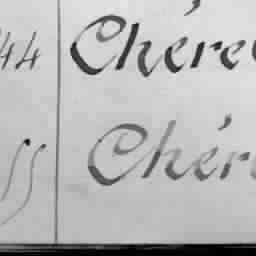 44 Chére
55 Chér